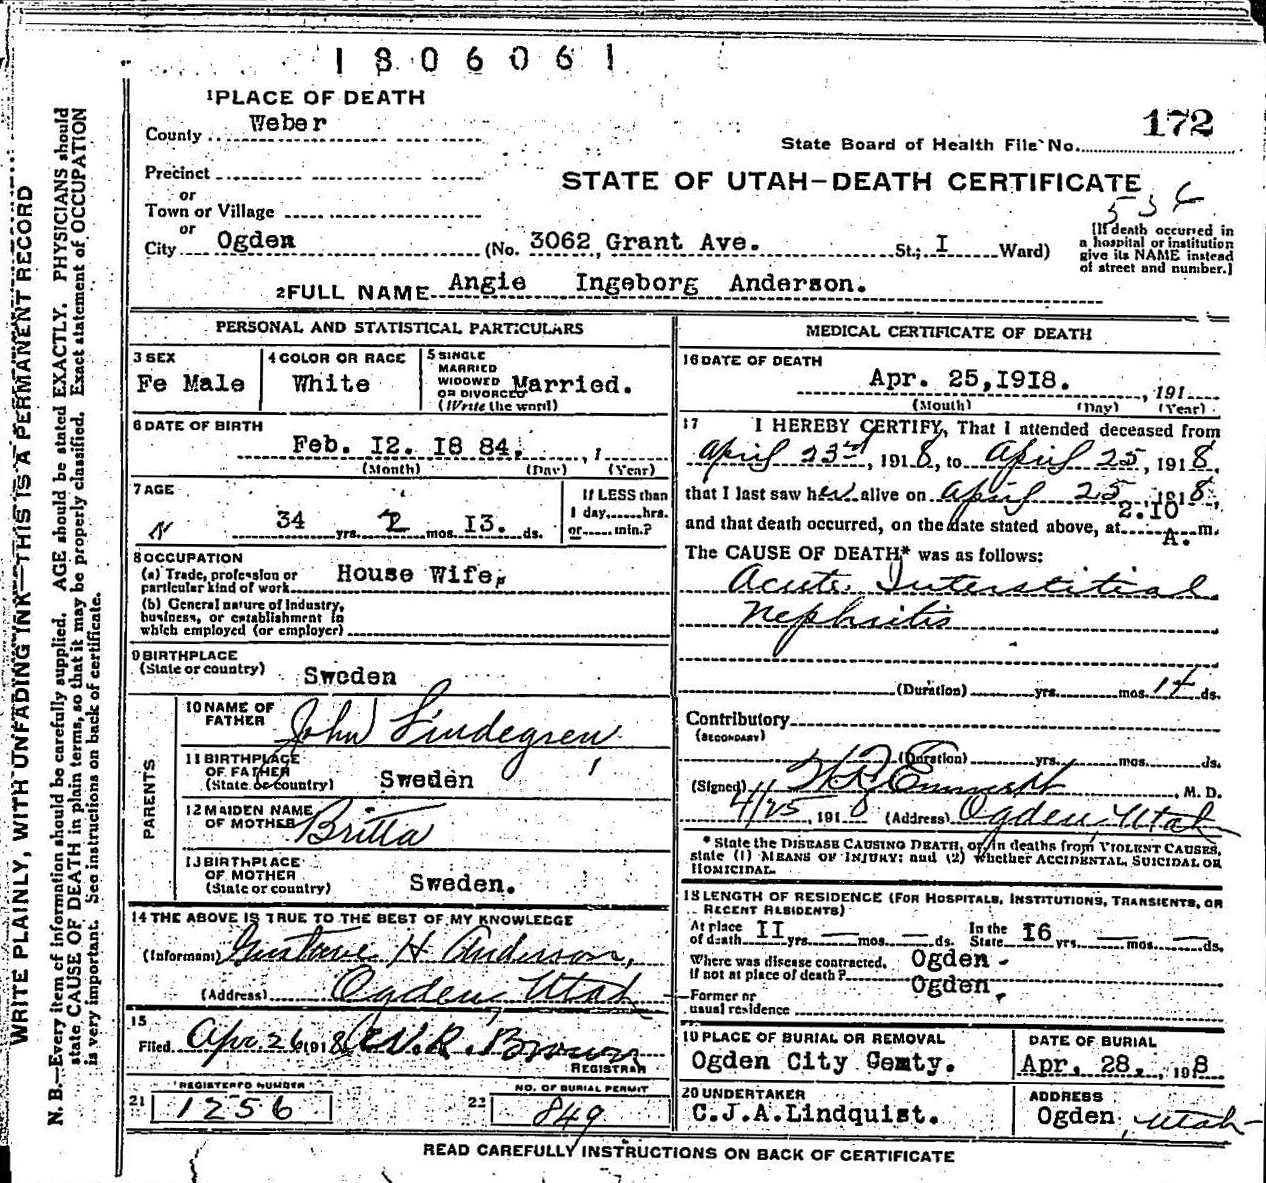 1806061
1PLACE OF DEATH
County Weber
172
State Board of Health File No.
Precinct
or
STATE OF UTAH-DEATH CERTIFICATE
Town or Village
or
City Ogden (No. 3062 Grant Ave. St.; I Ward)
[If death occurred in
a hospital or institution
give its NAME instead
of street and number.]
2FULL NAME Angie Ingeborg Anderson.
PERSONAL AND STATISTICAL PARTICULARS
3 SEX
Fe Male
4 COLOR OR RACE
White
5 SINGLE
MARRIED
WIDOWED
OR DIVORCED
(Write the word)
Married.
6 DATE OF BIRTH
Feb. I2. I8 84. , 1
(Month) (Day) (Year)
7 AGE
34 yrs. 2 mos. I3. ds.
If LESS than
1 day, hrs.
or min.?
8 OCCUPATION
(a) Trade, profession or
particular kind of work House Wife,
(b) General nature of Industry,
business, or establishment in
which employed (or employer)
9 BIRTHPLACE
(State or country) Sweden
PARENTS
10 NAME OF
FATHER John Lindegren
11 BIRTHPLACE
OF FATHER
(State or country) Sweden
12 MAIDEN NAME
OF MOTHER Britta
13 BIRTHPLACE
OF MOTHER
(State or country) Sweden.
14 THE ABOVE IS TRUE TO THE BEST OF MY KNOWLEDGE
(Informant) Gustave H Anderson,
(Address) Ogden, Utah
15
Filed Apr. 26 1918 W.R. Brown
REGISTRAR
REGISTERED NUMBER
21 1256
NO. OF BURIAL PERMIT
22 849
MEDICAL CERTIFICATE OF DEATH
16 DATE OF DEATH
Apr. 25,I9I8. , 191
(Month) (Day) (Year)
17 I HEREBY CERTIFY, That I attended deceased from
April 23rd, 1918, to April 25, 1918,
that I last saw her alive on April 25, 1918,
and that death occurred, on the date stated above, at 2.I0 A. m.
The CAUSE OF DEATH* was as follows:
Acute Interstitial
Nephritis
(Duration) yrs. mos. 14 ds.
Contributory
(SECONDARY)
(Duration) yrs. mos. ds.
(Signed) M. D.
4/25, 1918 (Address) Ogden, Utah
* State the DISEASE CAUSING DEATH, or, in deaths from VIOLENT CAUSES,
state (1) MEANS OF INJURY: and (2) whether ACCIDENTAL, SUICIDAL OR
HOMICIDAL.
18 LENGTH OF RESIDENCE (FOR HOSPITALS, INSTITUTIONS, TRANSIENTS, OR
RECENT RESIDENTS)
At place
of death II yrs. — mos. — ds.
In the
State I6 yrs. — mos. — ds.
Where was disease contracted, Ogden -
if not at place of death? Ogden.
Former or
usual residence
19 PLACE OF BURIAL OR REMOVAL
Ogden City Cemty.
DATE OF BURIAL
Apr. 28. , 1918
20 UNDERTAKER
C.J.A.Lindquist.
ADDRESS
Ogden, Utah
READ CAREFULLY INSTRUCTIONS ON BACK OF CERTIFICATE
WRITE PLAINLY, WITH UNFADING INK—THIS IS A PERMANENT RECORD
N. B.—Every item of information should be carefully supplied. AGE should be stated EXACTLY. PHYSICIANS should
state CAUSE OF DEATH in plain terms, so that it may be properly classified. Exact statement of OCCUPATION
is very important. See instructions on back of certificate.